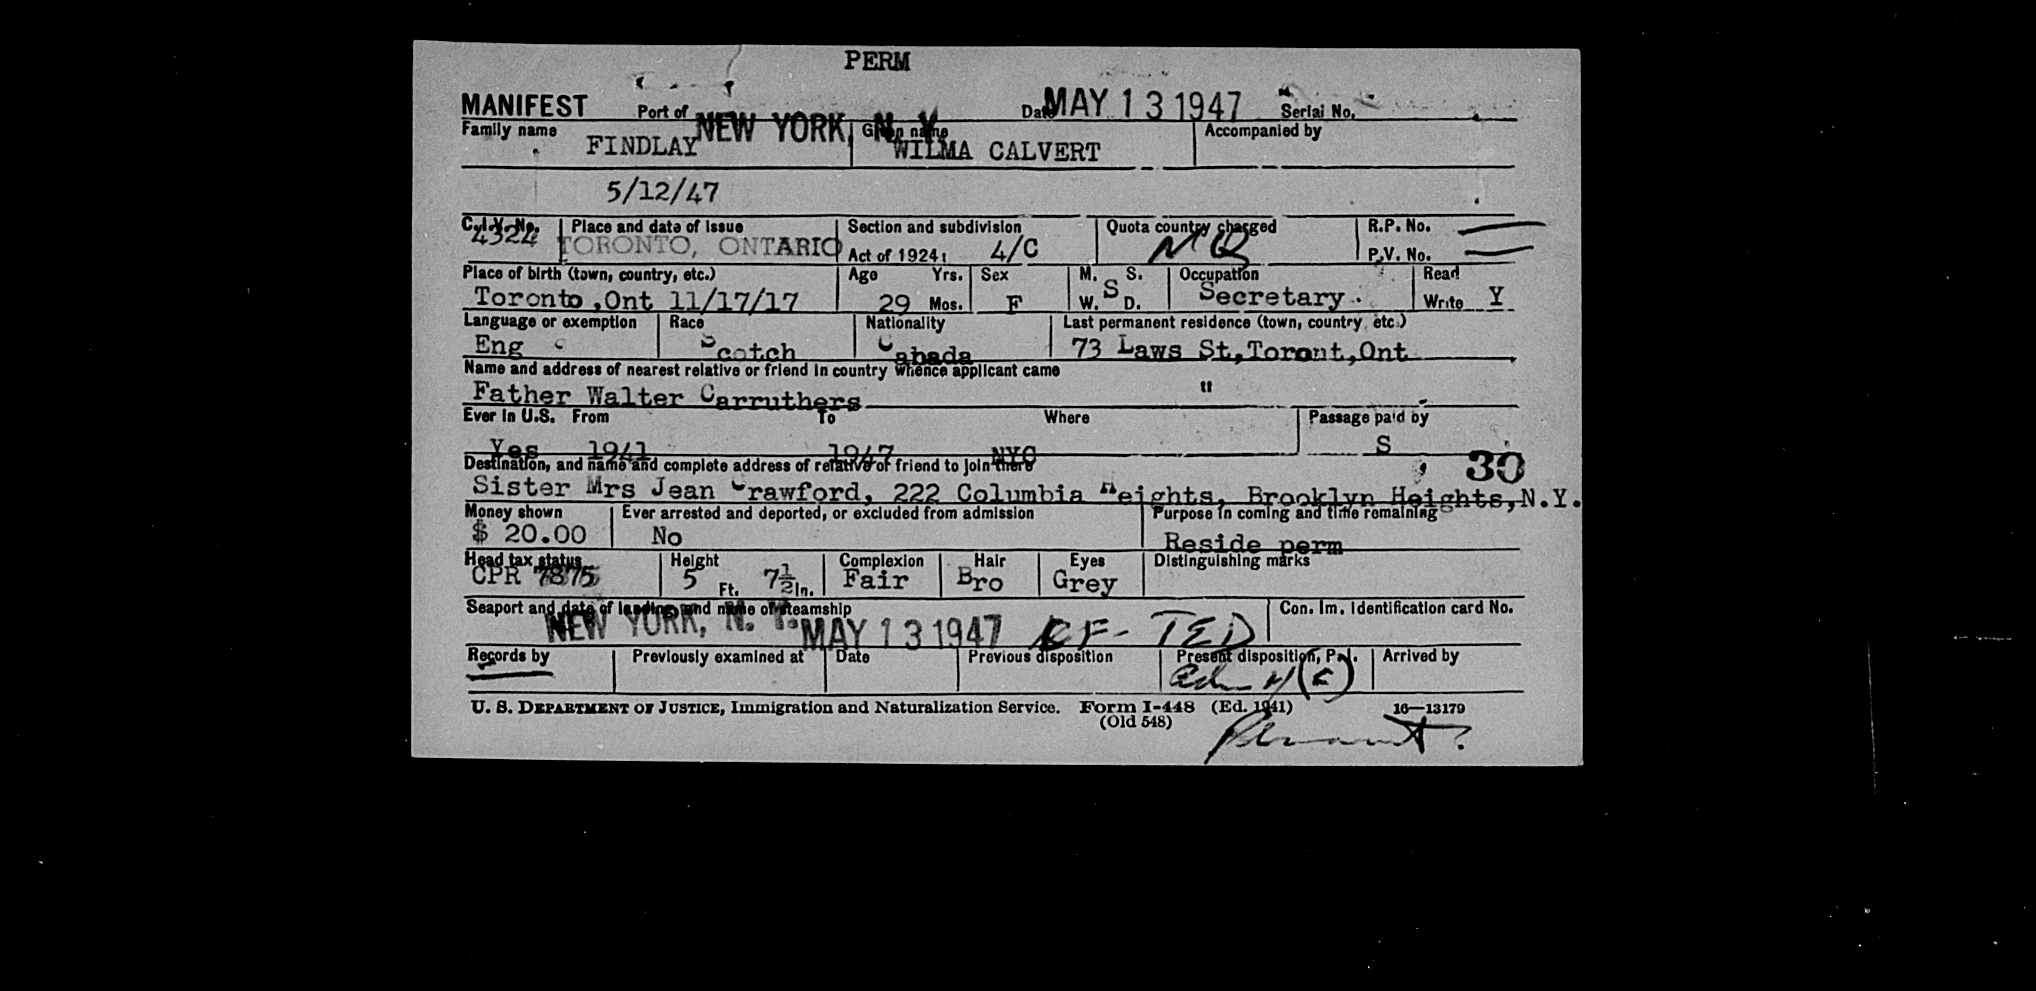 PERM
MANIFEST Port of NEW YORK, N. Y. Date MAY 13 1947 Serial No.
Family name FINDLAY Given name WILMA CALVERT Accompanied by
5/12/47
C.I.V. No. 4324 Place and date of issue TORONTO, ONTARIO Section and subdivision Act of 1924: 4/C Quota country charged NQ R.P. No. P.V. No.
Place of birth (town, country, etc.) Toronto ,Ont 11/17/17 Age 29 Yrs. Mos. Sex F M. S. W. D. S Occupation Secretary. Read Write Y
Language or exemption Eng Race Scotch Nationality Cabada Last permanent residence (town, country, etc.) 73 Laws St,Toront,Ont
Name and address of nearest relative or friend in country whence applicant came
Father Walter Carruthers "
Ever in U.S. Yes From 1941 To 1947 Where NYC Passage paid by S
Destination, and name and complete address of relative or friend to join there 30
Sister Mrs Jean Crawford, 222 Columbia Heights, Brooklyn Heights,N.Y.
Money shown $ 20.00 Ever arrested and deported, or excluded from admission No Purpose in coming and time remaining Reside perm
Head tax status CPR 7875 Height 5 Ft. 7½ In. Complexion Fair Hair Bro Eyes Grey Distinguishing marks
Seaport and date of landing, and name of steamship NEW YORK, N. Y. MAY 13 1947 CF- TED Con. Im. Identification card No.
Records by Previously examined at Date Previous disposition Present disposition, P. I. Arrived by
U. S. DEPARTMENT OF JUSTICE, Immigration and Naturalization Service. Form I-448 (Ed. 1941) 16—13179
(Old 548)